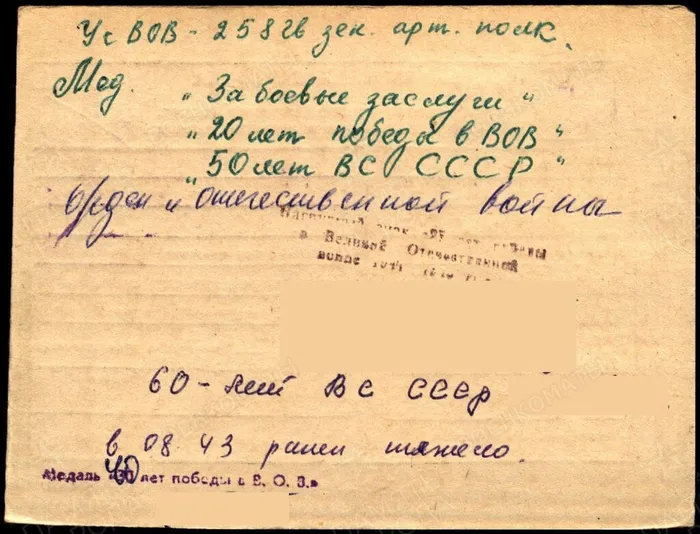 Уч ВОВ - 258 гв зен. арт. полк.
Мед. "За боевые заслуги"
"20 лет победы в ВОВ"
"50 лет ВС СССР"
Орден "Отечественной войны
Нагрудный знак «25 лет победы
в Великой Отечественной
войне 1941
60-лет ВС СССР
в 08 43 ранен тяжело.
Медаль «40 лет победы в В. О. В.»